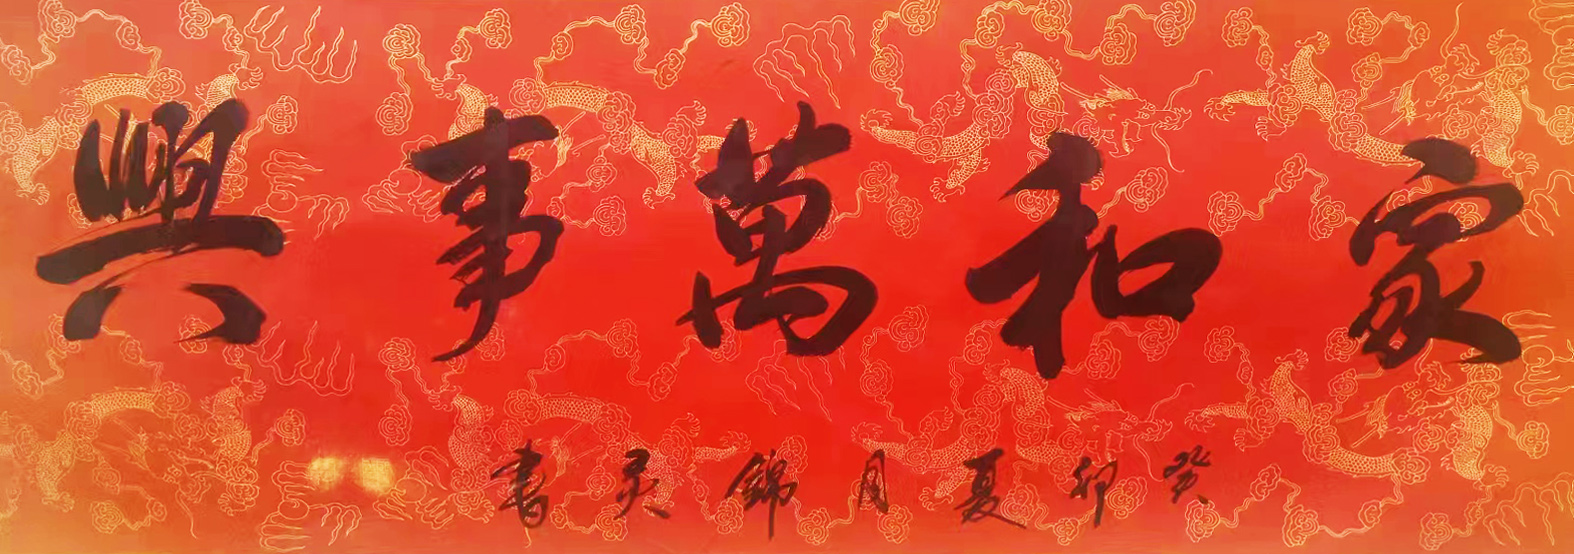 家和萬事興
癸卯夏月錦灵書